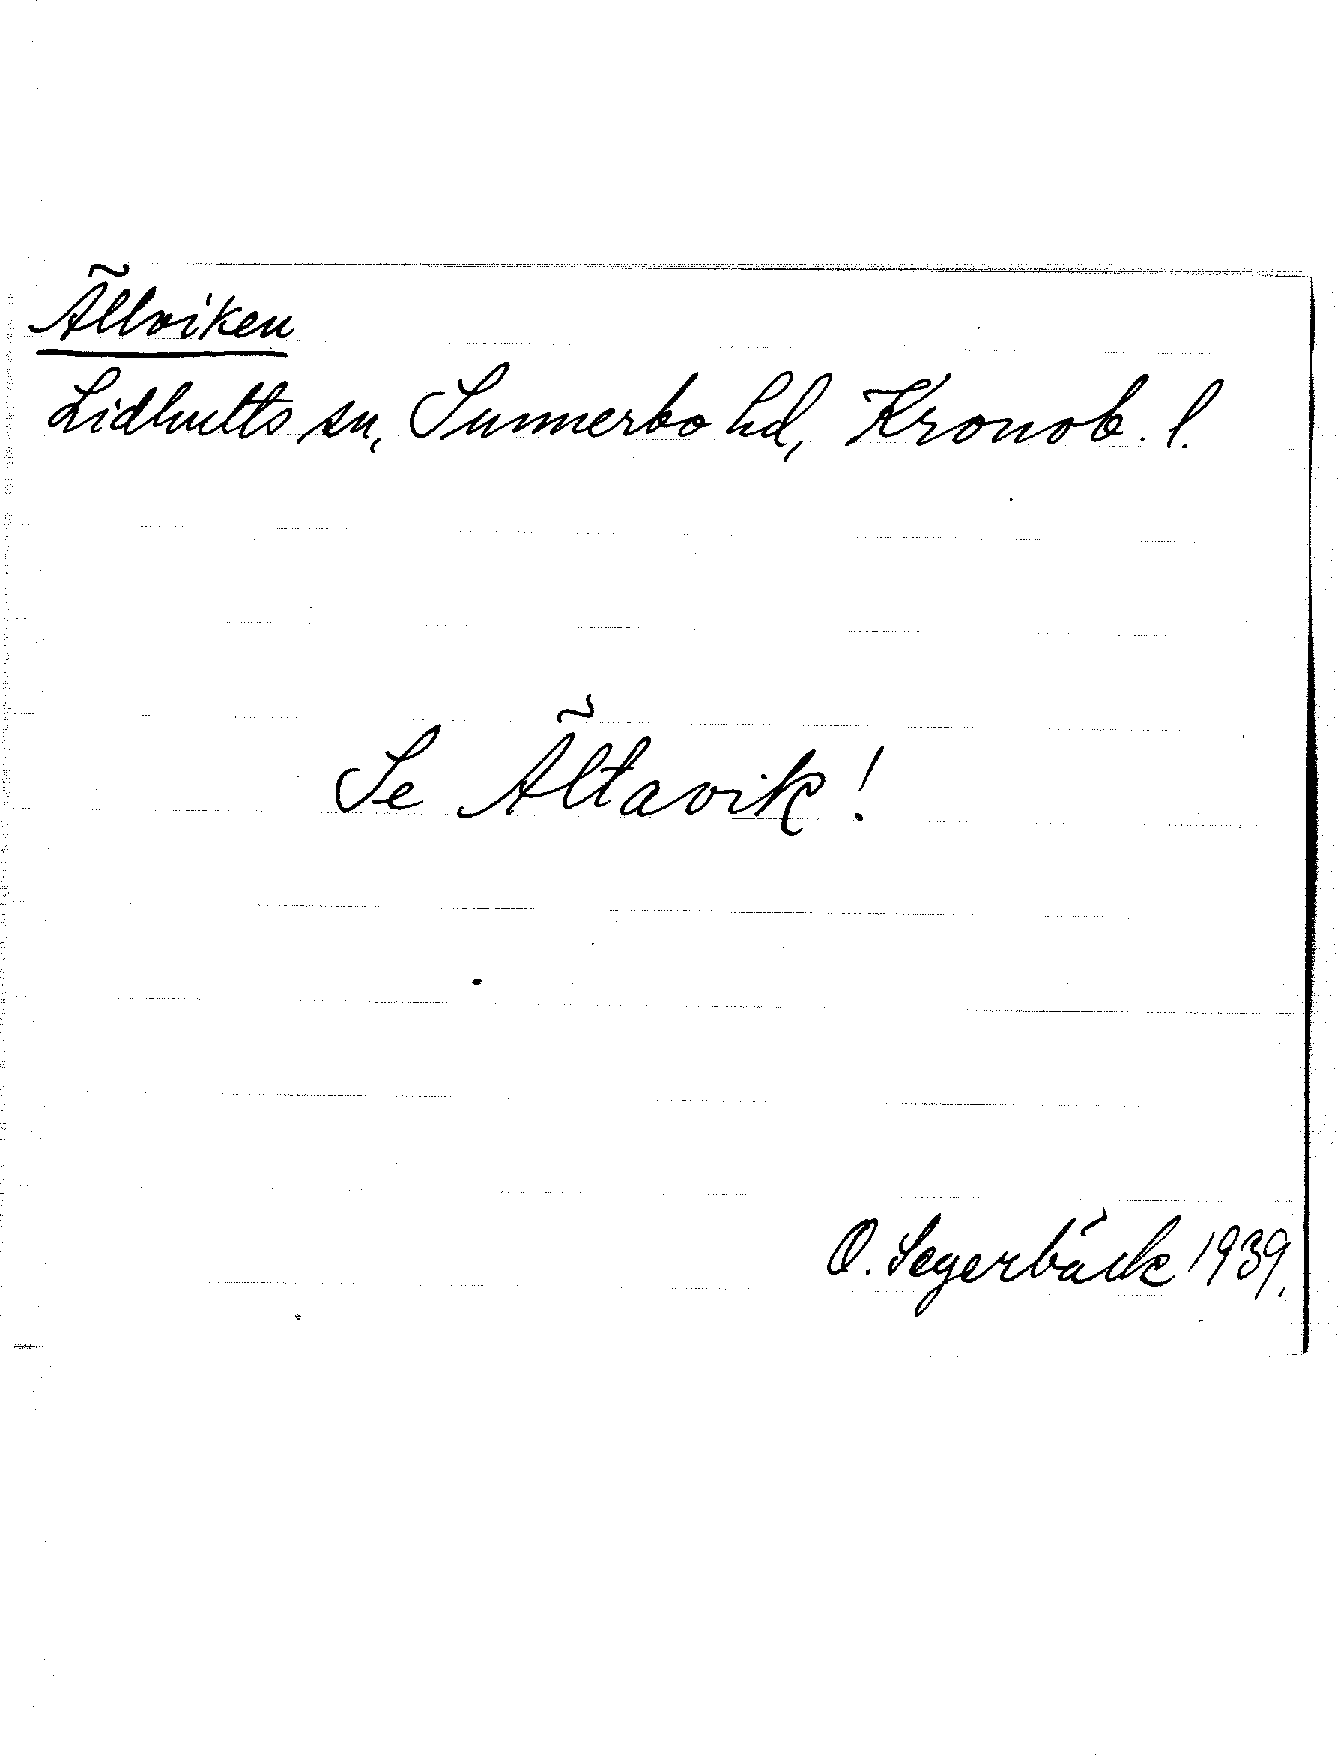 Ällviken
Lidhults sn, Sunnerbo hd, Kronob. l.
Se Ältavik!
O. Segerbäck 1939.